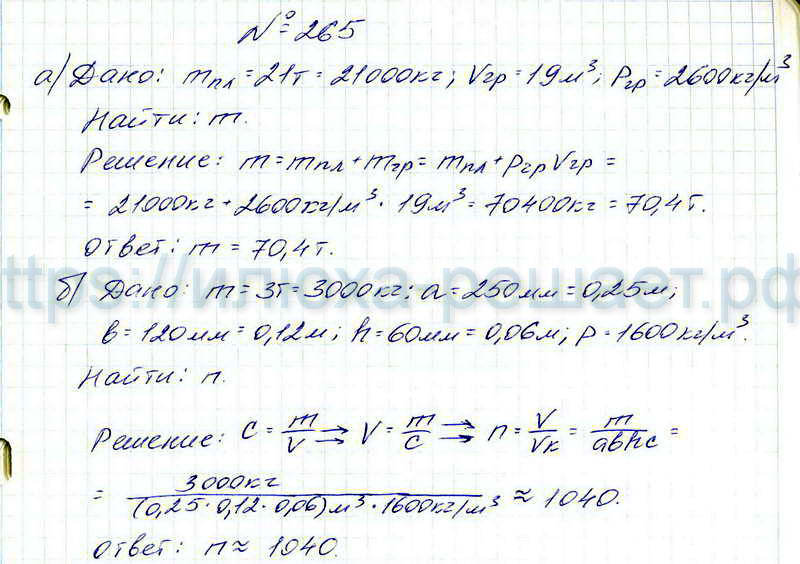 № 265
а) Дано: mпл = 21т = 21000кг; Vгр = 19м³; ρгр = 2600кг/м³
Найти: m.
Решение: m = mпл + mгр = mпл + ρгр Vгр =
= 21000кг + 2600кг/м³ · 19м³ = 70400кг = 70,4т.
Ответ: m = 70,4т.
https://илюха-решает.рф
б) Дано: m = 3т = 3000кг; a = 250мм = 0,25м;
в = 120мм = 0,12м; h = 60мм = 0,06м; ρ = 1600кг/м³.
Найти: n.
Решение: C = m/V → V = m/C → n = V/Vк = m/aвhc =
= 3000кг/(0,25·0,12·0,06)м³·1600кг/м³ ≈ 1040.
Ответ: n ≈ 1040.